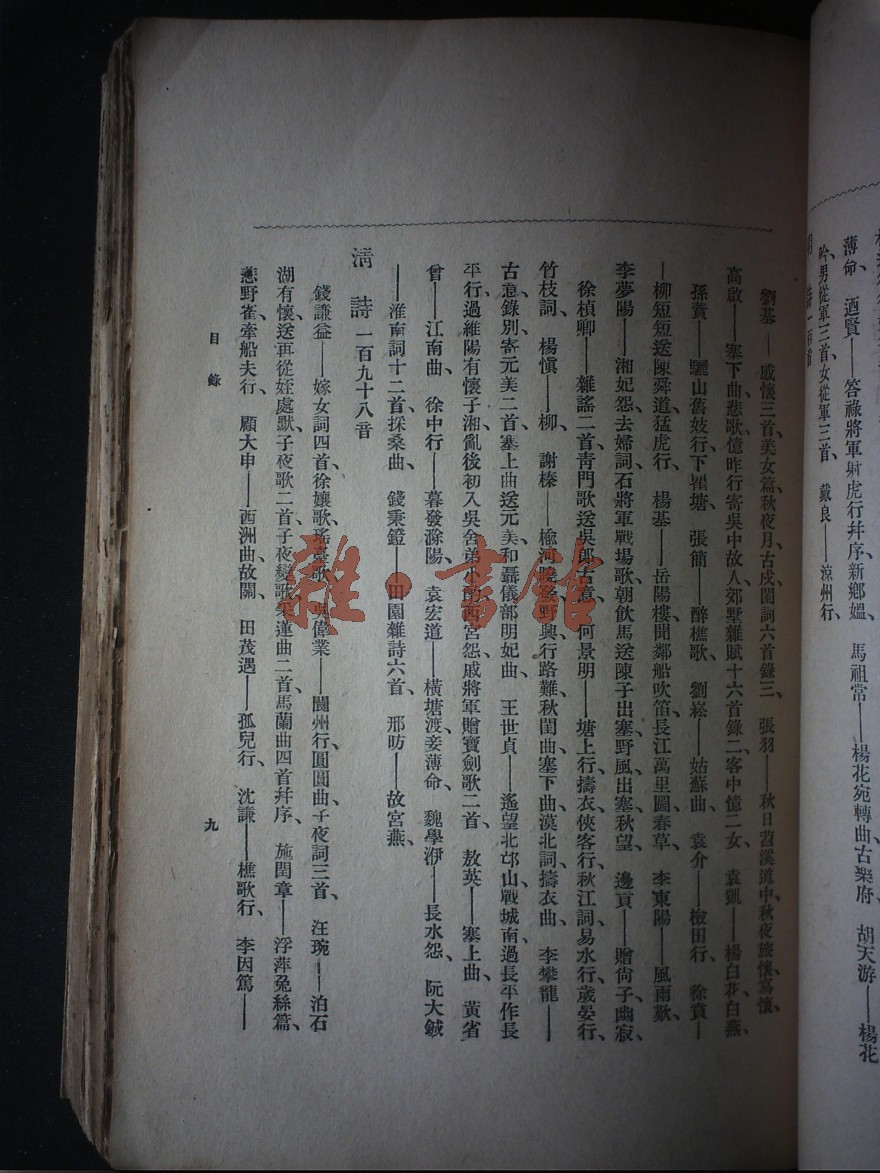 薄命、迺賢——答祿將軍射虎行幷序、新鄉媼、馬祖常——楊花宛轉曲、古樂府、胡天游——楊花
吟、男從軍三首、女從軍三首、戴良——涼州行、
劉基——感懷三首、美女篇、秋夜月、古戍、閨詞六首錄三、張羽——秋日苕溪道中、秋夜旅懷寫懷、
高啟——塞下曲、悲歌、憶昨行寄吳中故人、郊墅雜賦十六首錄二、客中憶二女、袁凱——楊白花、白燕、
孫蕡——驪山舊妓行、下瞿塘、張簡——醉樵歌、劉崧——姑蘇曲、袁介——檢田行、徐賁—
—柳短短送陳舜道、猛虎行、楊基——岳陽樓、聞鄰船吹笛、長江萬里圖、春草、李東陽——風雨歎、
李夢陽——湘妃怨、去婦詞、石將軍戰場歌、朝飲馬送陳子出塞、野風、出塞、秋望、邊貢——贈尙子、幽寂、
徐禎卿——雜謠二首、靑門歌送吳郎、古意、何景明——塘上行、擣衣、俠客行、秋江詞、易水行、歲晏行、
竹枝詞、楊愼——柳、謝榛——楡河曉發、野興、行路難、秋閨曲、塞下曲、漠北詞、擣衣曲、李攀龍——
古意、錄別、寄元美二首、塞上曲送元美、和聶儀部明妃曲、王世貞——遙望北邙山、戰城南、過長平作長
平行、過維陽有懷子湘、亂後初入吳舍弟小酌、西宮怨、戚將軍贈寶劍歌二首、敖英——塞上曲、黃省
曾——江南曲、徐中行——暮發滁陽、袁宏道——橫塘渡、妾薄命、魏學洢——長水怨、阮大鋮
——淮南詞十二首、採桑曲、錢秉鐙——田園雜詩六首、邢昉——故宮燕、
淸詩 一百九十八音
錢謙益——嫁女詞四首、徐孃歌、瑤臺歌、吳偉業——閬州行、圓圓曲、子夜詞三首、汪琬——泊石
湖有懷、送再從姪處默、子夜歌二首、子夜變歌、采蓮曲二首、馬蘭曲四首幷序、施閏章——浮萍兔絲篇、
悲野雀、牽船夫行、顧大申——西洲曲、故關、田茂遇——孤兒行、沈謙——樵歌行、李因篤——
目錄 九
雜·書館